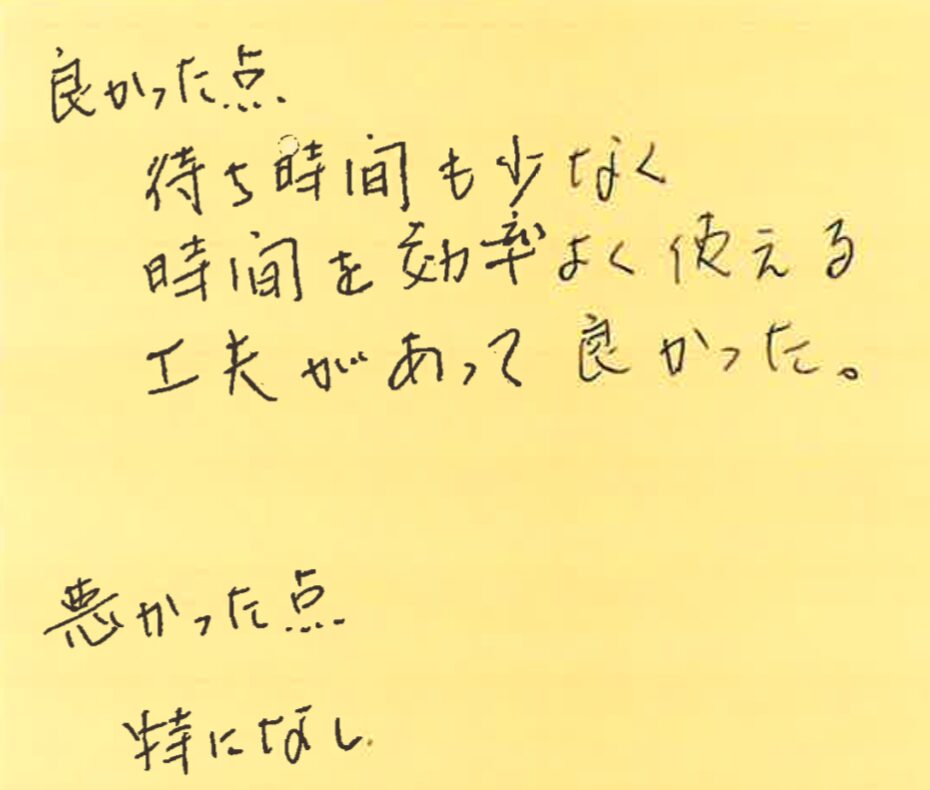 良かった点
待ち時間も少なく
時間を効率よく使える
工夫があって良かった。
悪かった点
特になし